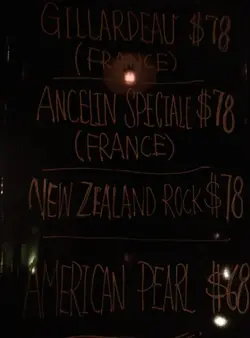 GILLARDEAU $78
(FRANCE)
ANCELIN SPECIALE $78
(FRANCE)
NEW ZEALAND ROCK $78
AMERICAN PEARL $68